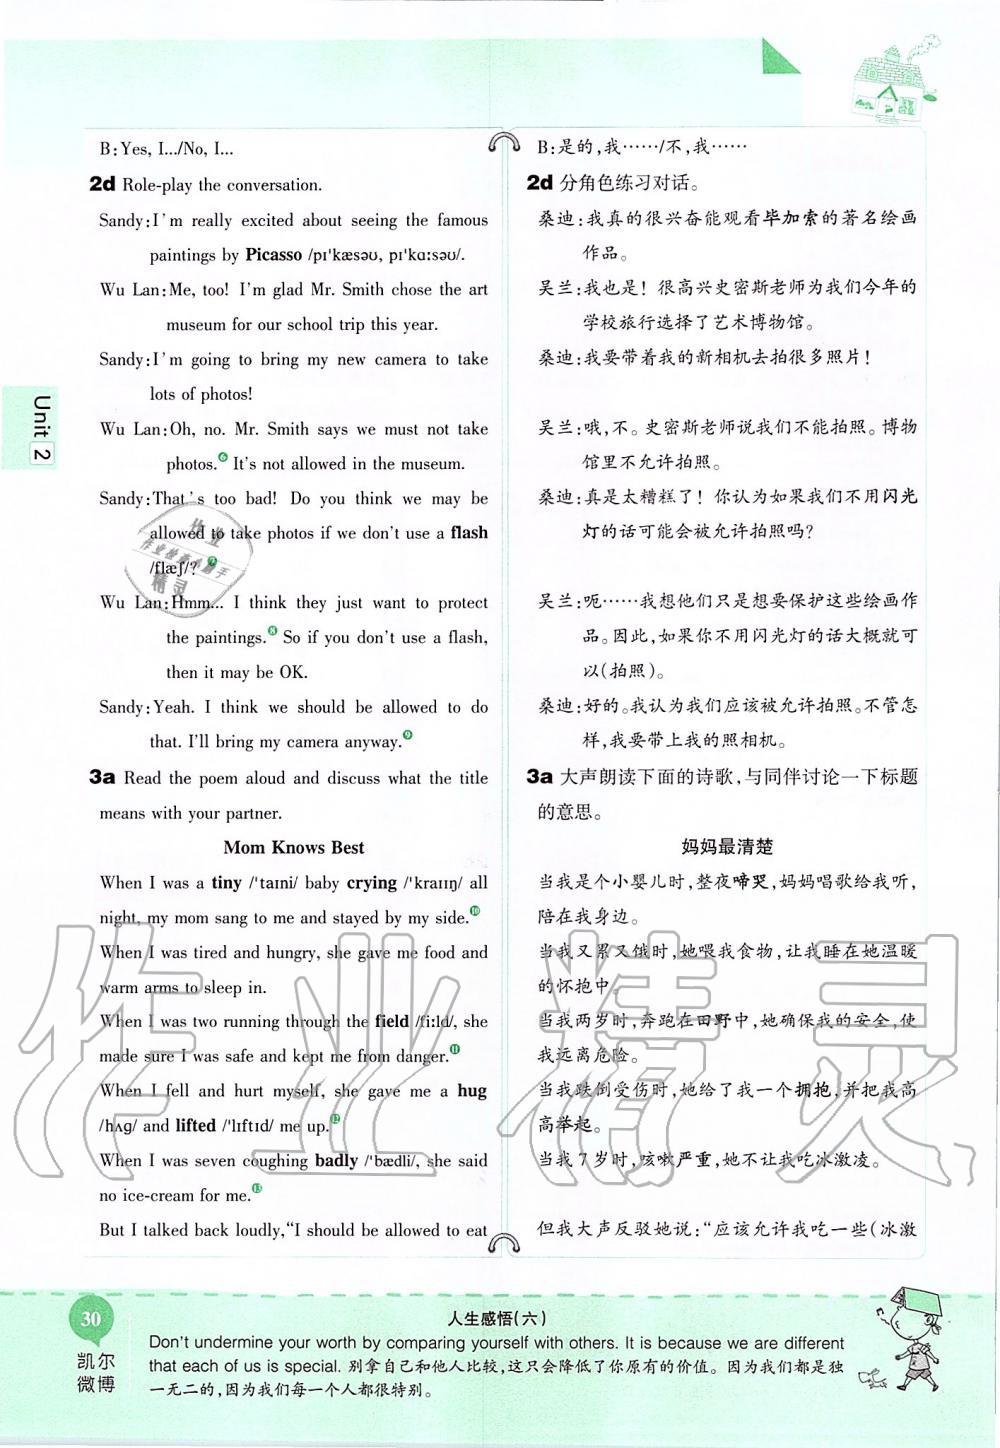 B:Yes, I.../No, I...
2d Role-play the conversation.
Sandy:I'm really excited about seeing the famous
paintings by Picasso /pɪ'kæsəʊ, pɪ'kɑːsəʊ/.
Wu Lan:Me, too! I'm glad Mr. Smith chose the art
museum for our school trip this year.
Sandy:I'm going to bring my new camera to take
lots of photos!
Wu Lan:Oh, no. Mr. Smith says we must not take
photos.⑥ It's not allowed in the museum.
Sandy:That's too bad! Do you think we may be
allowed to take photos if we don't use a flash
/flæʃ/?⑦
Wu Lan:Hmm... I think they just want to protect
the paintings.⑧ So if you don't use a flash,
then it may be OK.
Sandy:Yeah. I think we should be allowed to do
that. I'll bring my camera anyway.⑨
3a Read the poem aloud and discuss what the title
means with your partner.
Mom Knows Best
When I was a tiny /'taɪni/ baby crying /'kraɪɪŋ/ all
night, my mom sang to me and stayed by my side.⑩
When I was tired and hungry, she gave me food and
warm arms to sleep in.
When I was two running through the field /fiːld/, she
made sure I was safe and kept me from danger.⑪
When I fell and hurt myself, she gave me a hug
/hʌɡ/ and lifted /'lɪftɪd/ me up.⑫
When I was seven coughing badly /'bædli/, she said
no ice-cream for me.⑬
But I talked back loudly,"I should be allowed to eat
B:是的,我……/不,我……
2d 分角色练习对话。
桑迪:我真的很兴奋能观看毕加索的著名绘画
作品。
吴兰:我也是!很高兴史密斯老师为我们今年的
学校旅行选择了艺术博物馆。
桑迪:我要带着我的新相机去拍很多照片!
吴兰:哦,不。史密斯老师说我们不能拍照。博物
馆里不允许拍照。
桑迪:真是太糟糕了!你认为如果我们不用闪光
灯的话可能会被允许拍照吗?
吴兰:呃……我想他们只是想要保护这些绘画作
品。因此,如果你不用闪光灯的话大概就可
以(拍照)。
桑迪:好的。我认为我们应该被允许拍照。不管怎
样,我要带上我的照相机。
3a 大声朗读下面的诗歌,与同伴讨论一下标题
的意思。
妈妈最清楚
当我是个小婴儿时,整夜啼哭,妈妈唱歌给我听,
陪在我身边。
当我又累又饿时,她喂我食物,让我睡在她温暖
的怀抱中。
当我两岁时,奔跑在田野中,她确保我的安全,使
我远离危险。
当我跌倒受伤时,她给了我一个拥抱,并把我高
高举起。
当我7岁时,咳嗽严重,她不让我吃冰激凌。
但我大声反驳她说:“应该允许我吃一些(冰激
Unit 2
作业
作业检查小助手
精灵
作业精灵
30
凯尔
微博
人生感悟(六)
Don't undermine your worth by comparing yourself with others. It is because we are different
that each of us is special. 别拿自己和他人比较,这只会降低了你原有的价值。因为我们都是独
一无二的,因为我们每一个人都很特别。